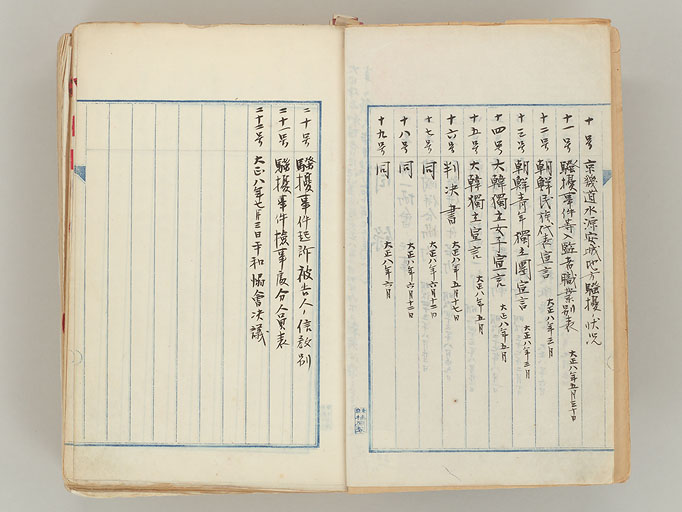 十号 京畿道水源安城地方騒擾ノ状況
十一号 騒擾事件等入監者職業別表 大正八年五月三十日
十二号 朝鮮民族代表宣言 大正八年三月
十三号 朝鮮青年獨立團宣言 大正八年三月
十四号 大韓獨立女子宣言 大正八年五月
十五号 大韓獨立宣言 大正八年五月
十六号 判决書 大正八年五月十七日
十七号 同 大正八年六月十二日
十八号 同 大正八年六月十二日
十九号 同 大正八年六月
二十号 騒擾事件起訴被告人ノ信教別
二十一号 騒擾事件検事處分人員表
二十二号 大正八年七月三日平和協會决議